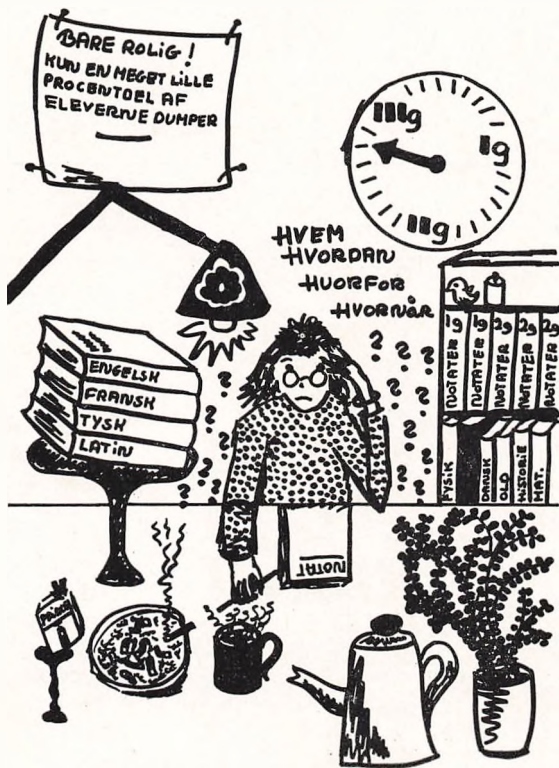 BARE ROLIG!
KUN EN MEGET LILLE
PROCENTDEL AF
ELEVERNE DUMPER
IIIg
Ig
IIg
HVEM
HVORDAN
HVORFOR
HVORNÅR
ENGELSK
FRANSK
TYSK
LATIN
1g NOTATER
1g NOTATER
2g NOTATER
2g NOTATER
2g NOTATER
FYSIK
DANSK
OLD
HISTORIE
MAT.
NOTAT